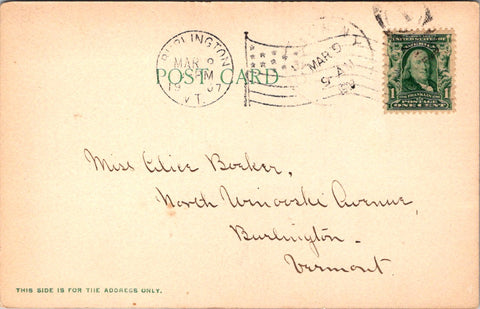 BURLINGTON
MAR 9
PM
1907
VT.
MAR 9
9 AM
POST CARD
UNITED STATES OF AMERICA
FRANKLIN
POSTAGE
ONE CENT
Miss Alice Booker,
North Winooski Avenue,
Burlington -
Vermont.
THIS SIDE IS FOR THE ADDRESS ONLY.